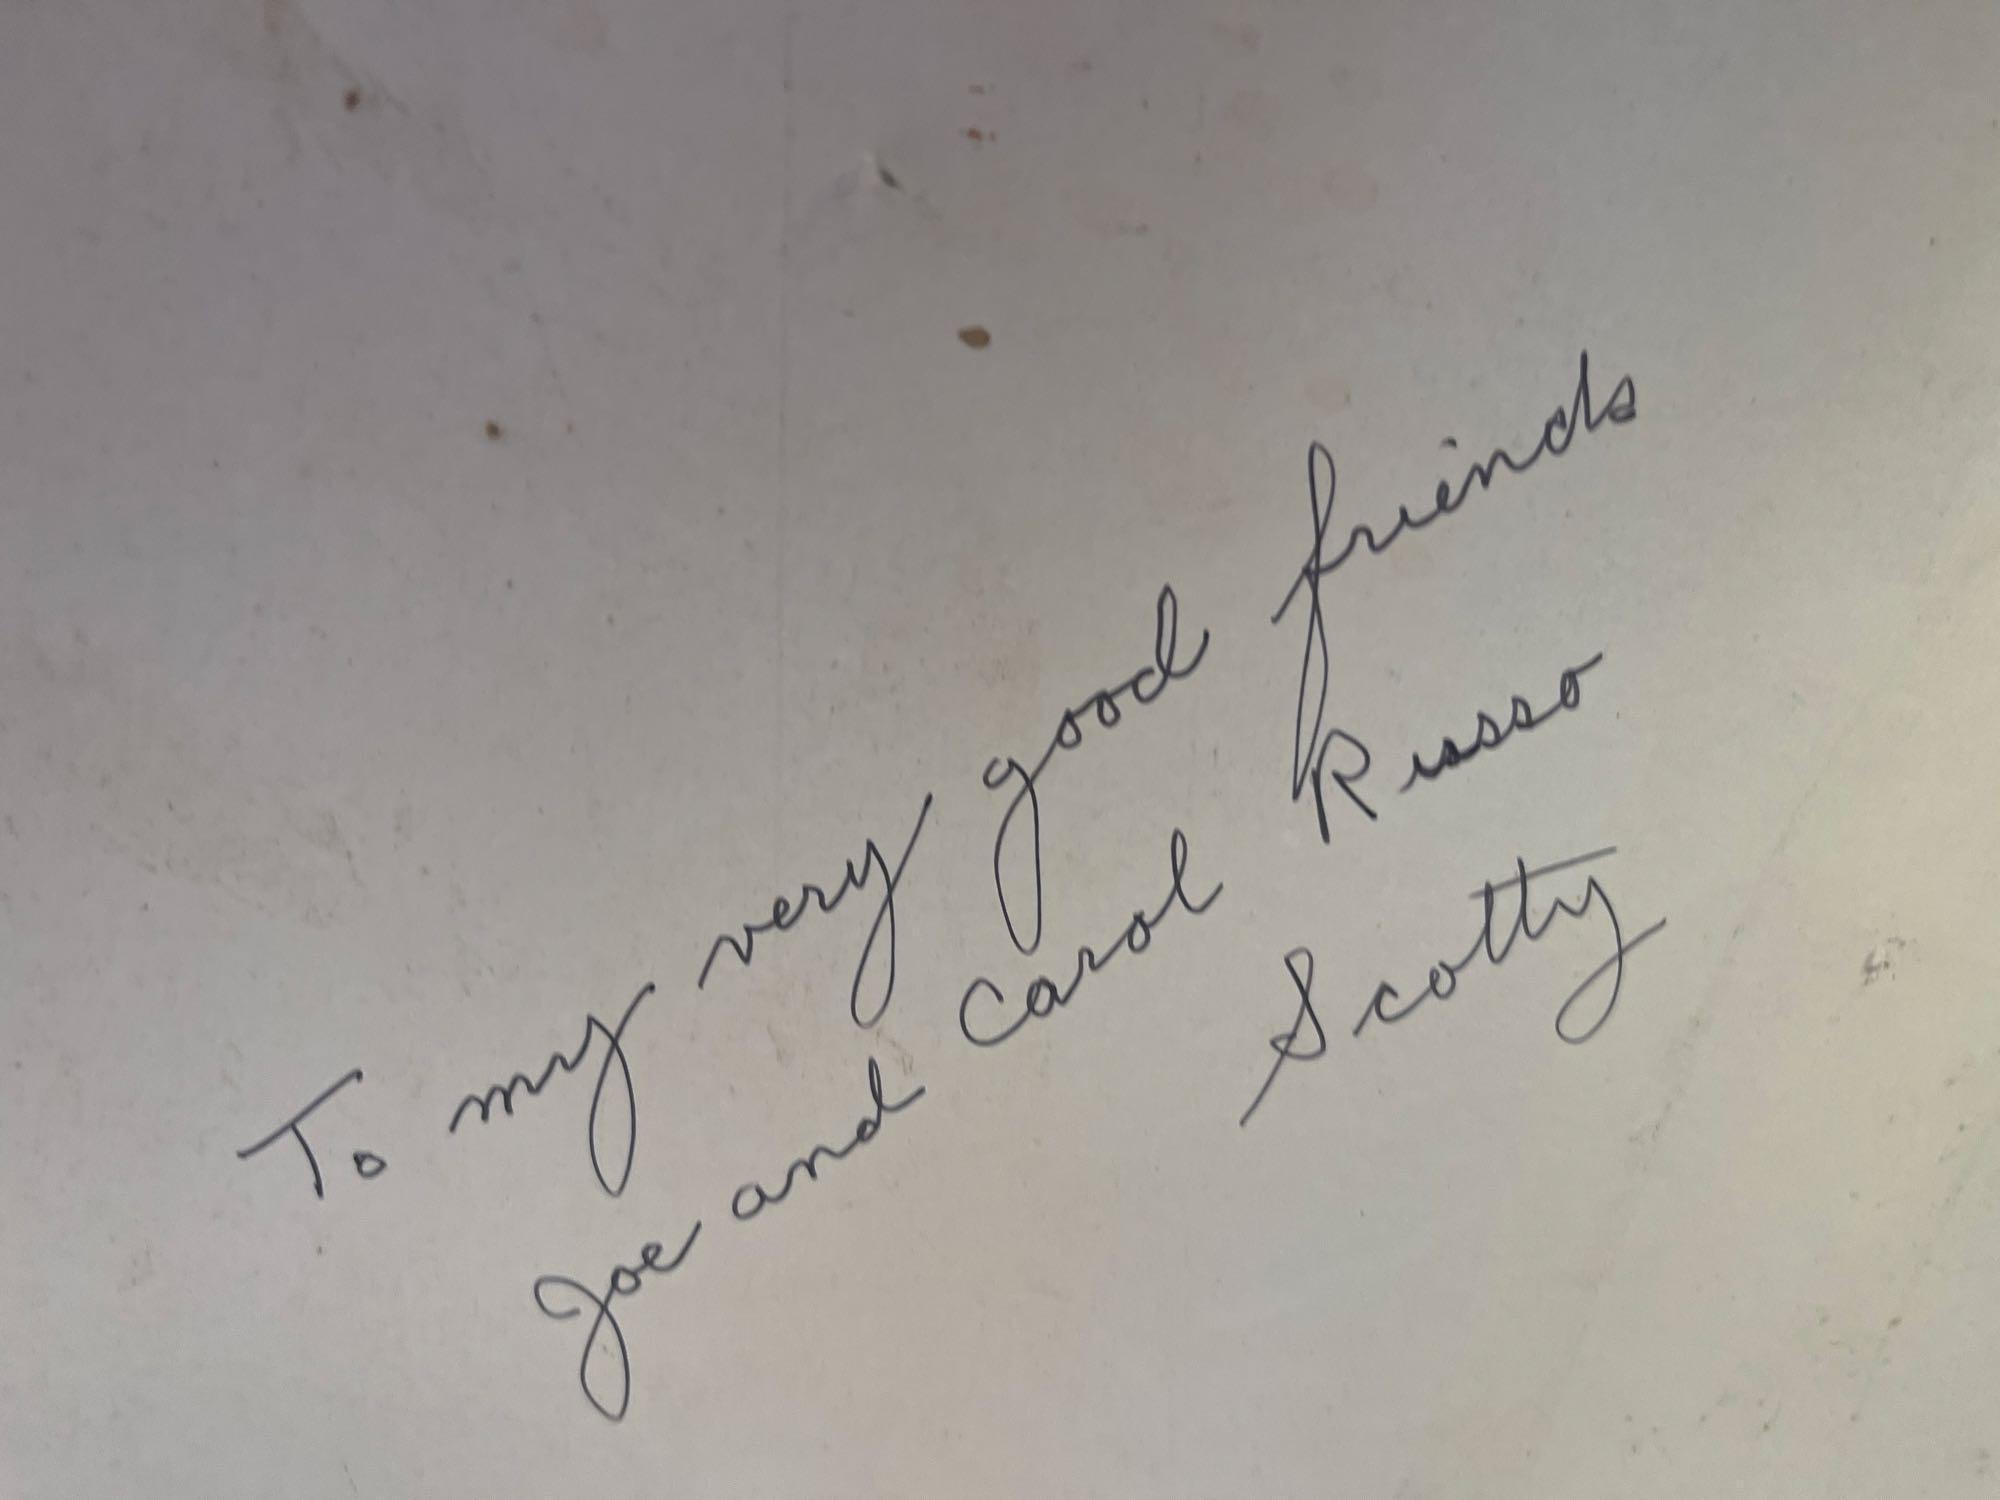 To my very good friends
Joe and Carol Russo
Scotty